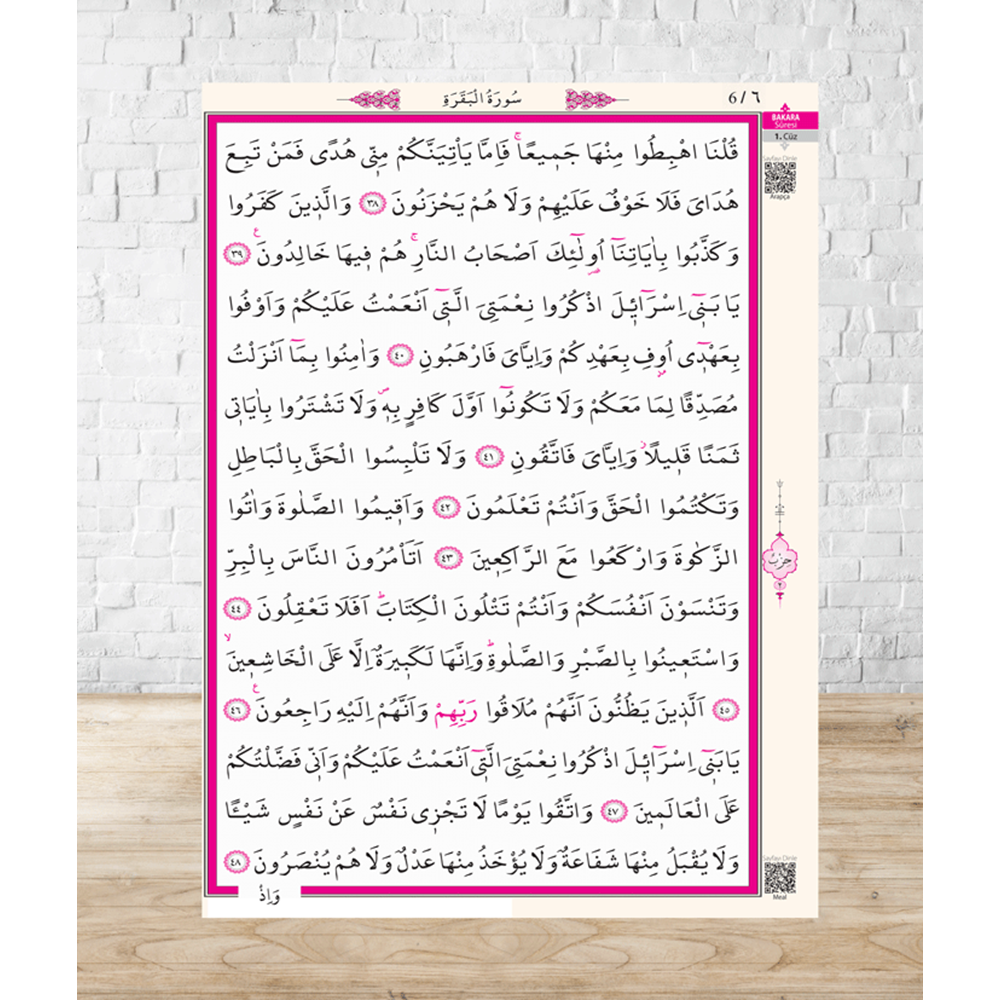 سُورَةُ الْبَقَرَةِ
6 / ٦
BAKARA
Sûresi
1. Cüz
Sayfayı Dinle
Arapça
قُلْنَا اهْبِطُوا مِنْهَا جَمٖيعًاۚ فَاِمَّا يَأْتِيَنَّكُمْ مِنّٖى هُدًى فَمَنْ تَبِعَ
هُدَاىَ فَلَا خَوْفٌ عَلَيْهِمْ وَلَا هُمْ يَحْزَنُونَ ﴿٣٨﴾ وَالَّذٖينَ كَفَرُوا
وَكَذَّبُوا بِاٰيَاتِنَٓا اُولٰٓئِكَ اَصْحَابُ النَّارِۚ هُمْ فٖيهَا خَالِدُونَࣖ ﴿٣٩﴾
يَا بَنٖٓى اِسْرَٓائٖلَ اذْكُرُوا نِعْمَتِىَ الَّتٖٓى اَنْعَمْتُ عَلَيْكُمْ وَاَوْفُوا
بِعَهْدٖٓى اُوفِ بِعَهْدِكُمْ وَاِيَّاىَ فَارْهَبُونِ ﴿٤٠﴾ وَاٰمِنُوا بِمَٓا اَنْزَلْتُ
مُصَدِّقًا لِمَا مَعَكُمْ وَلَا تَكُونُٓوا اَوَّلَ كَافِرٍ بِهٖࣕ وَلَا تَشْتَرُوا بِاٰيَاتٖى
ثَمَنًا قَلٖيلًاؗ وَاِيَّاىَ فَاتَّقُونِ ﴿٤١﴾ وَلَا تَلْبِسُوا الْحَقَّ بِالْبَاطِلِ
وَتَكْتُمُوا الْحَقَّ وَاَنْتُمْ تَعْلَمُونَ ﴿٤٢﴾ وَاَقٖيمُوا الصَّلٰوةَ وَاٰتُوا
الزَّكٰوةَ وَارْكَعُوا مَعَ الرَّاكِعٖينَ ﴿٤٣﴾ اَتَأْمُرُونَ النَّاسَ بِالْبِرِّ
وَتَنْسَوْنَ اَنْفُسَكُمْ وَاَنْتُمْ تَتْلُونَ الْكِتَابَؕ اَفَلَا تَعْقِلُونَ ﴿٤٤﴾
وَاسْتَعٖينُوا بِالصَّبْرِ وَالصَّلٰوةِؕ وَاِنَّهَا لَكَبٖيرَةٌ اِلَّا عَلَى الْخَاشِعٖينَۙ
﴿٤٥﴾ اَلَّذٖينَ يَظُنُّونَ اَنَّهُمْ مُلَاقُوا رَبِّهِمْ وَاَنَّهُمْ اِلَيْهِ رَاجِعُونَࣖ ﴿٤٦﴾
يَا بَنٖٓى اِسْرَٓائٖلَ اذْكُرُوا نِعْمَتِىَ الَّتٖٓى اَنْعَمْتُ عَلَيْكُمْ وَاَنّٖى فَضَّلْتُكُمْ
عَلَى الْعَالَمٖينَ ﴿٤٧﴾ وَاتَّقُوا يَوْمًا لَا تَجْزٖى نَفْسٌ عَنْ نَفْسٍ شَيْـًٔا
وَلَا يُقْبَلُ مِنْهَا شَفَاعَةٌ وَلَا يُؤْخَذُ مِنْهَا عَدْلٌ وَلَا هُمْ يُنْصَرُونَ ﴿٤٨﴾
وَاِذْ
حزب
٢
Sayfayı Dinle
Meal